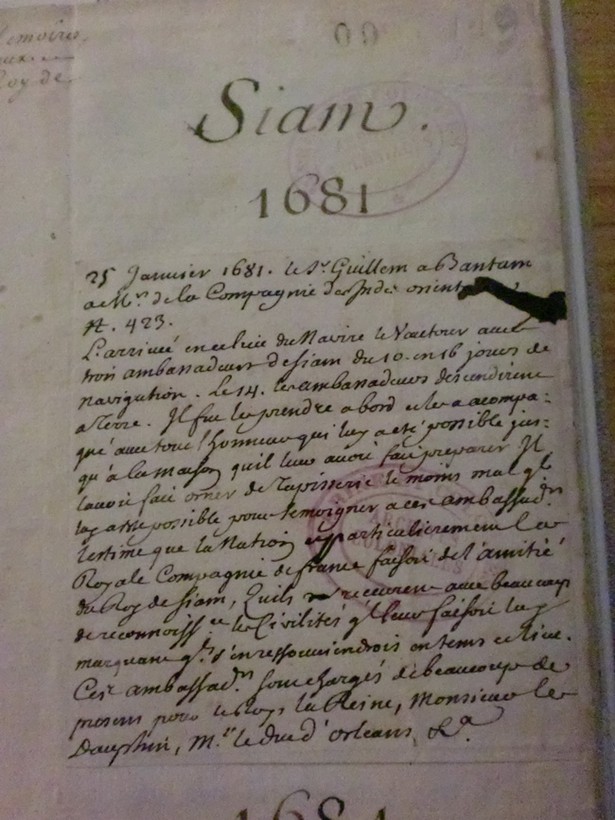 Memoires
Roy de
Siam.
1681
25 Janvier 1681. le Sr. Guillem a Bantam
a Mrs. de la Compagnie des Indes orient
N. 423.
L'arrivé en ce lieu du Navire le Vautour avec
trois ambassadeurs de Siam du 10. en 16 jours de
navigation. Le 14. les ambassadeurs descendirent
a Terre. Il fut les prendre a bord et les a acompa-
gné avec tout l'honneur qui luy a eté possible jus-
qu'a la Maison qu'il leur avoit fait preparer. Il
l'avoit fait orner de Tapisserie le moins mal ql.
luy a eté possible pour temoigner a ces ambassadrs
l'estime que la Nation et particulierement la
Royale Compagnie de france faisoit de l'amitié
du Roy de Siam, Quils receurent avec beaucoup
de reconnoissce. les Civilités ql. leur faisoit luy
marquant qls. s'en ressouviendrois en tems et lieu.
Ces ambassadrs. sont chargés de beaucoup de
presens pour le Roy, la Reine, Monsieur le
Dauphin, Mr. le duc d'orleans, &a.
1681